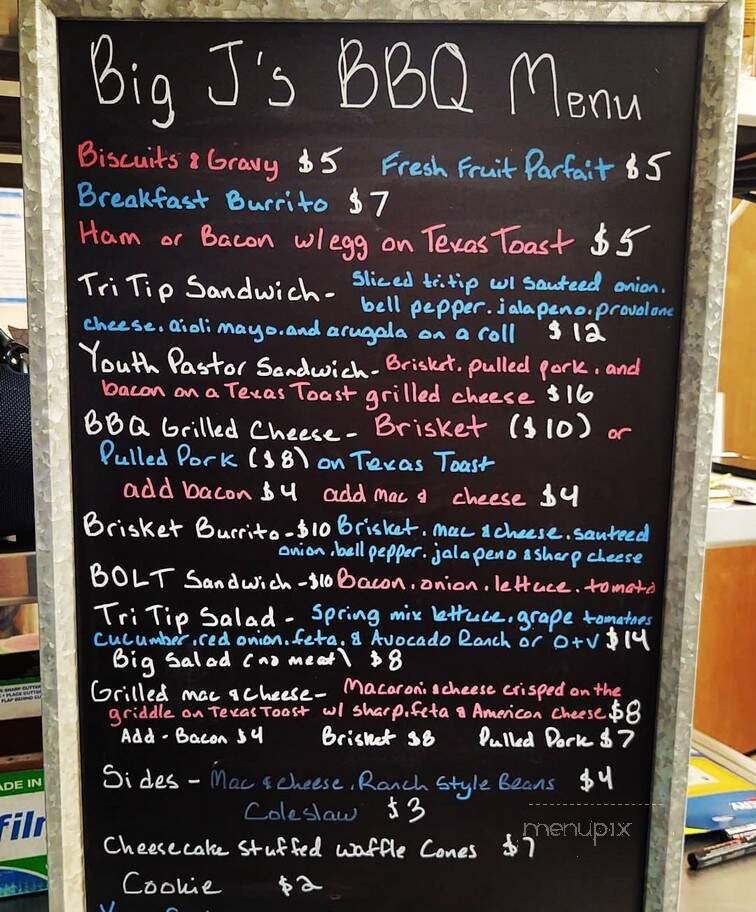 Big J's BBQ Menu
Biscuits & Gravy $5 Fresh Fruit Parfait $5
Breakfast Burrito $7
Ham or Bacon w/egg on Texas Toast $5
Tri Tip Sandwich - Sliced tri.tip w/ sauteed onion.
bell pepper.jalapeno.provolone
cheese.aioli mayo.and arugala on a roll $12
Youth Pastor Sandwich - Brisket. pulled pork. and
bacon on a Texas Toast grilled cheese $16
BBQ Grilled Cheese - Brisket ($10) or
Pulled Pork ($8) on Texas Toast
add bacon $4 add mac & cheese $4
Brisket Burrito - $10 Brisket. mac & cheese. sauteed
onion.bell pepper. jalapeno & sharp cheese
BOLT Sandwich - $10 Bacon. onion. lettuce. tomato
Tri Tip Salad - Spring mix lettuce. grape tomatoes
cucumber.red onion.feta. & Avocado Ranch or O+V $14
Big Salad (no meat) $8
Grilled mac & cheese - Macaroni & cheese crisped on the
griddle on Texas Toast w/ sharp.feta & American cheese $8
Add - Bacon $4 Brisket $8 Pulled Pork $7
Sides - Mac & cheese. Ranch Style Beans $4
Coleslaw $3
menupix
Cheesecake Stuffed Waffle Cones $7
Cookie $2
ADE IN
film